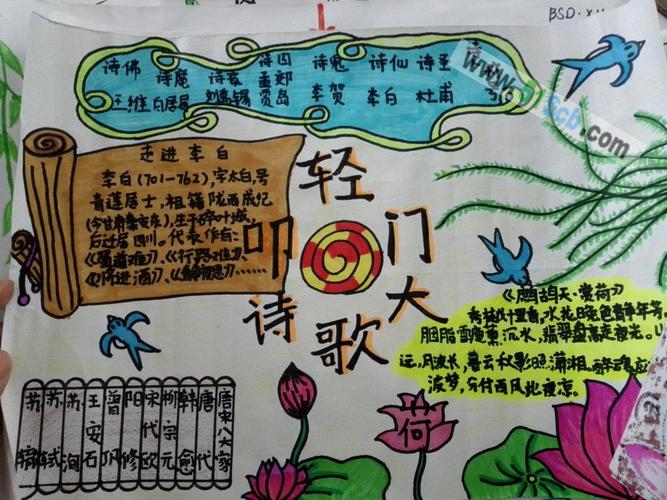 BSD·
诗佛 诗魔 诗豪 诗囚 诗鬼 诗仙 诗圣
王维 白居易 刘禹锡 孟郊 贾岛 李贺 李白 杜甫
www.
cb.com
走进李白
李白(701-762),字太白,号
青莲居士,祖籍陇西成纪
(今甘肃秦安东),生于碎叶城,
后迁居四川。代表作有:
《蜀道难》、《行路难》、
《将进酒》、《静夜思》……
轻
叩
诗
歌
大
门
《鹧鸪天·赏荷》
十里香,水花晓色静年芳。
胭脂雪瘦熏沉水,翡翠盘高走夜光。山
远,风波长,暮云秋影照潇湘。醉魂应
波梦,分付西风此夜凉。
荷
唐宋八大家
唐代
韩愈
柳宗元
宋代欧
阳修
曾巩
王安石
苏洵
苏轼
苏辙